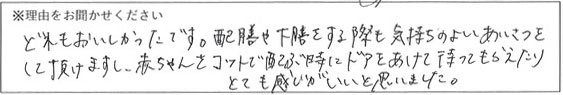 ※理由をお聞かせください
どれもおいしかったです。配膳や下膳をする際も気持ちのよいあいさつを
して頂けますし、赤ちゃんをコットで運ぶ時にドアをあけて待ってもらえたり
とても感じがいいと思いました。